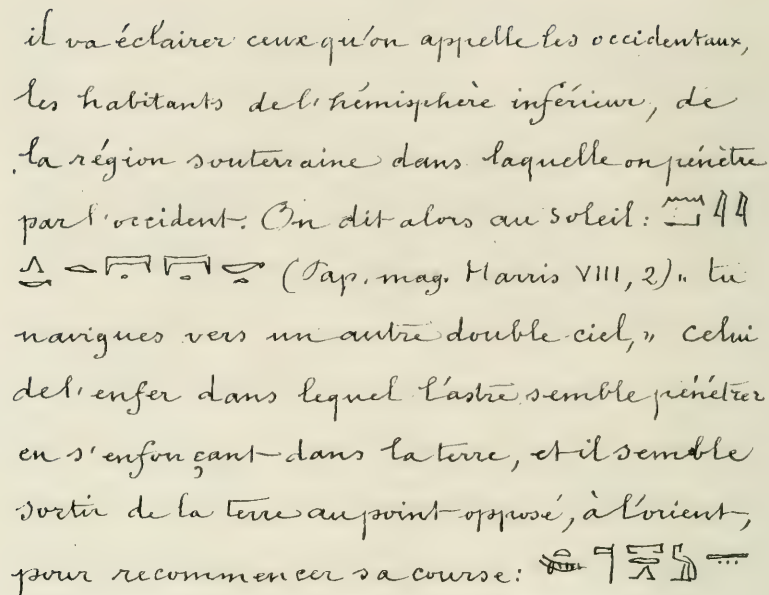 il va éclairer ceux qu'on appelle les occidentaux,
les habitants de l'hémisphère inférieur, de
la région souterraine dans laquelle on pénètre
par l'occident. On dit alors au soleil :
(Pap. mag. Harris VIII, 2) „ tu
navigues vers un autre double ciel, „ celui
de l'enfer dans lequel l'astre semble pénétrer
en s'enfonçant dans la terre, et il semble
sortir de la terre au point opposé, à l'orient,
pour recommencer sa course :